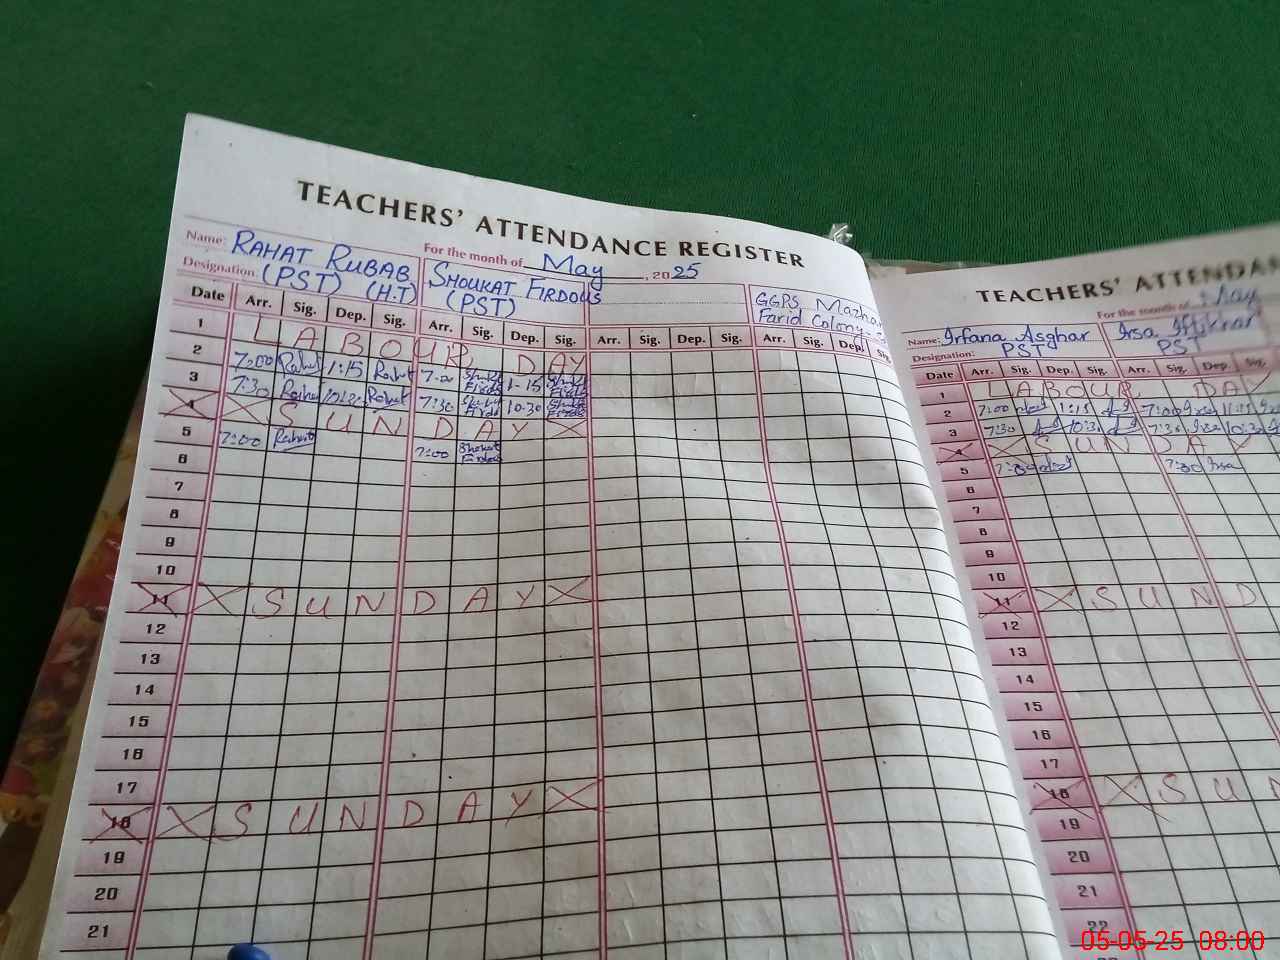 TEACHERS' ATTENDANCE REGISTER
Name: RAHAT RUBAB
For the month of May, 2025
Designation: (PST) (H.T)
SHOUKAT FIRDOUS
(PST)
GGPS, Mazhar
Farid Colony
Date Arr. Sig. Dep. Sig. Arr. Sig. Dep. Sig. Arr. Sig. Dep. Sig. Arr. Sig. Dep. Sig.
1 LABOUR DAY
2 7:00 Rahat 1:15 Rahat 7:00 1-15
3 7:30 Rahat 10:30 Rahat 7:30 10:30
4 X SUNDAY X
5 7:00 Rahat 7:00 Shoukat Firdous
6
7
8
9
10
11 X SUNDAY X
12
13
14
15
16
17
18 X SUNDAY X
19
20
21
TEACHERS' ATTENDAN
For the month of May
Name: Irfana Asghar
Irsa Iftikhar
Designation: PST
PST
Date Arr. Sig. Dep. Sig. Arr. Sig. Dep. Sig.
1 LABOUR DAY
2 7:00 1:15 7:00 Irsa 1:15
3 7:30 10:30 7:30 Irsa 10:30
4 X SUNDAY
5 7:00 7:00 Irsa
6
7
8
9
10
11 X SUND
12
13
14
15
16
17
18 X SUN
19
20
21
22
05-05-25 08:00